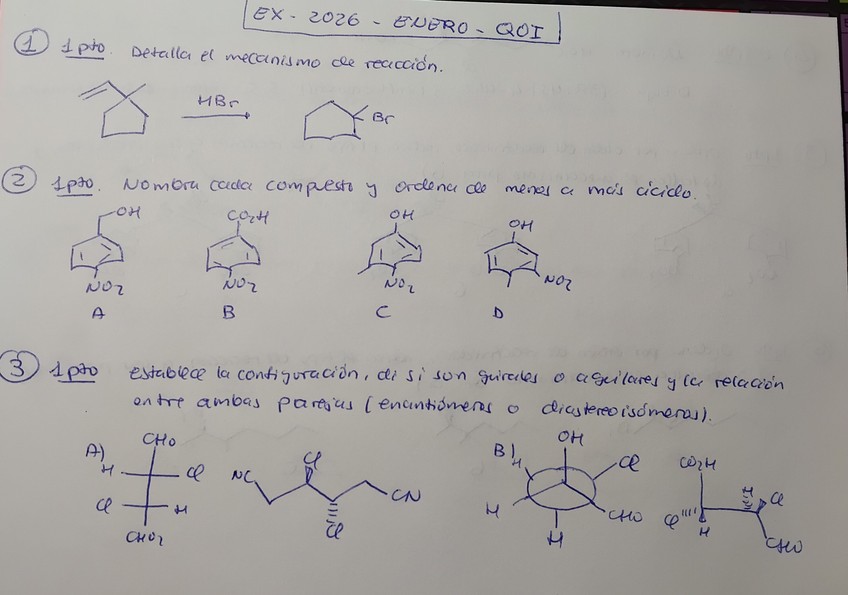 EX - 2026 - ENERO - QOI
1 1pto. Detalla el mecanismo de reacción.
HBr
Br
2 1pto. Nombra cada compuesto y ordena de menos a más ácido.
OH CO2H OH OH
NO2 NO2 NO2 NO2
A B C D
3 1pto establece la configuración, di si son quirales o aquilares y la relación
entre ambas parejas (enantiómeros o diastereoisómeros).
A) CHO Cl B) OH CO2H
H Cl NC H Cl H Cl
Cl H CN H CHO Cl
CHO2 Cl H H CHO